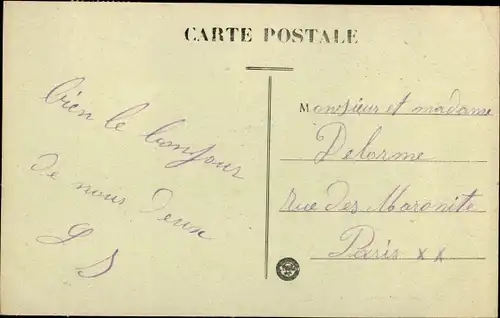 CARTE POSTALE
bien le bonjour
de nous deux
L S
Monsieur et madame
Delorme
rue des Maronite
Paris xx